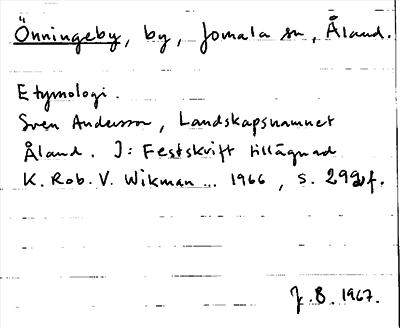 Önningeby, by, Jomala sn, Åland.
Etymologi.
Sven Andersson, Landskapsnamnet
Åland. I: Festskrift tillägnad
K. Rob. V. Wikman... 1966, s. 299 f.
J. B. 1967.